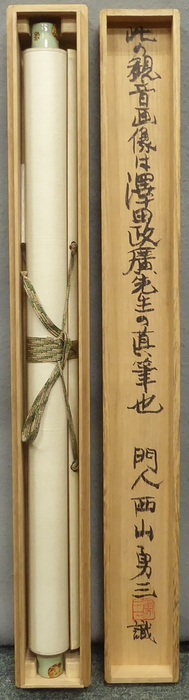 此の観音画像は澤田政廣先生の真筆也 門人 西山勇三 識